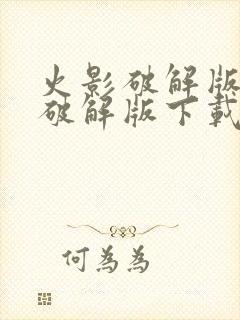 火影破解版
破解版下載
何為為